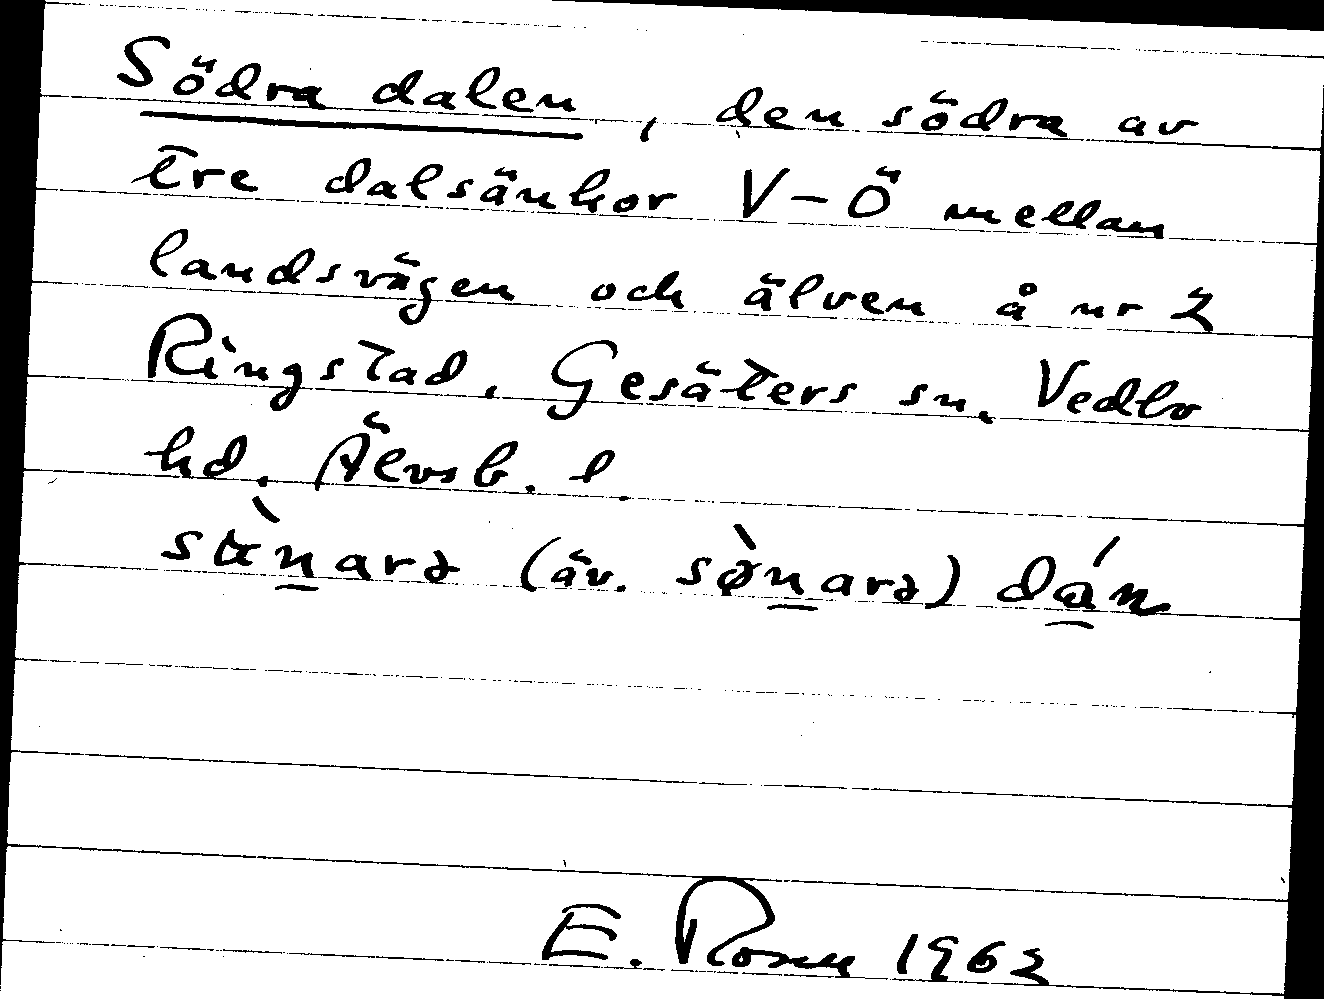 Södra dalen, den södra av
tre dalsänkor V-Ö mellan
landsvägen och älven å nr 2
Ringstad. Gesäters sn. Vedbo
hd. Älvsb. l.
(äv.
E. Rosen 1962